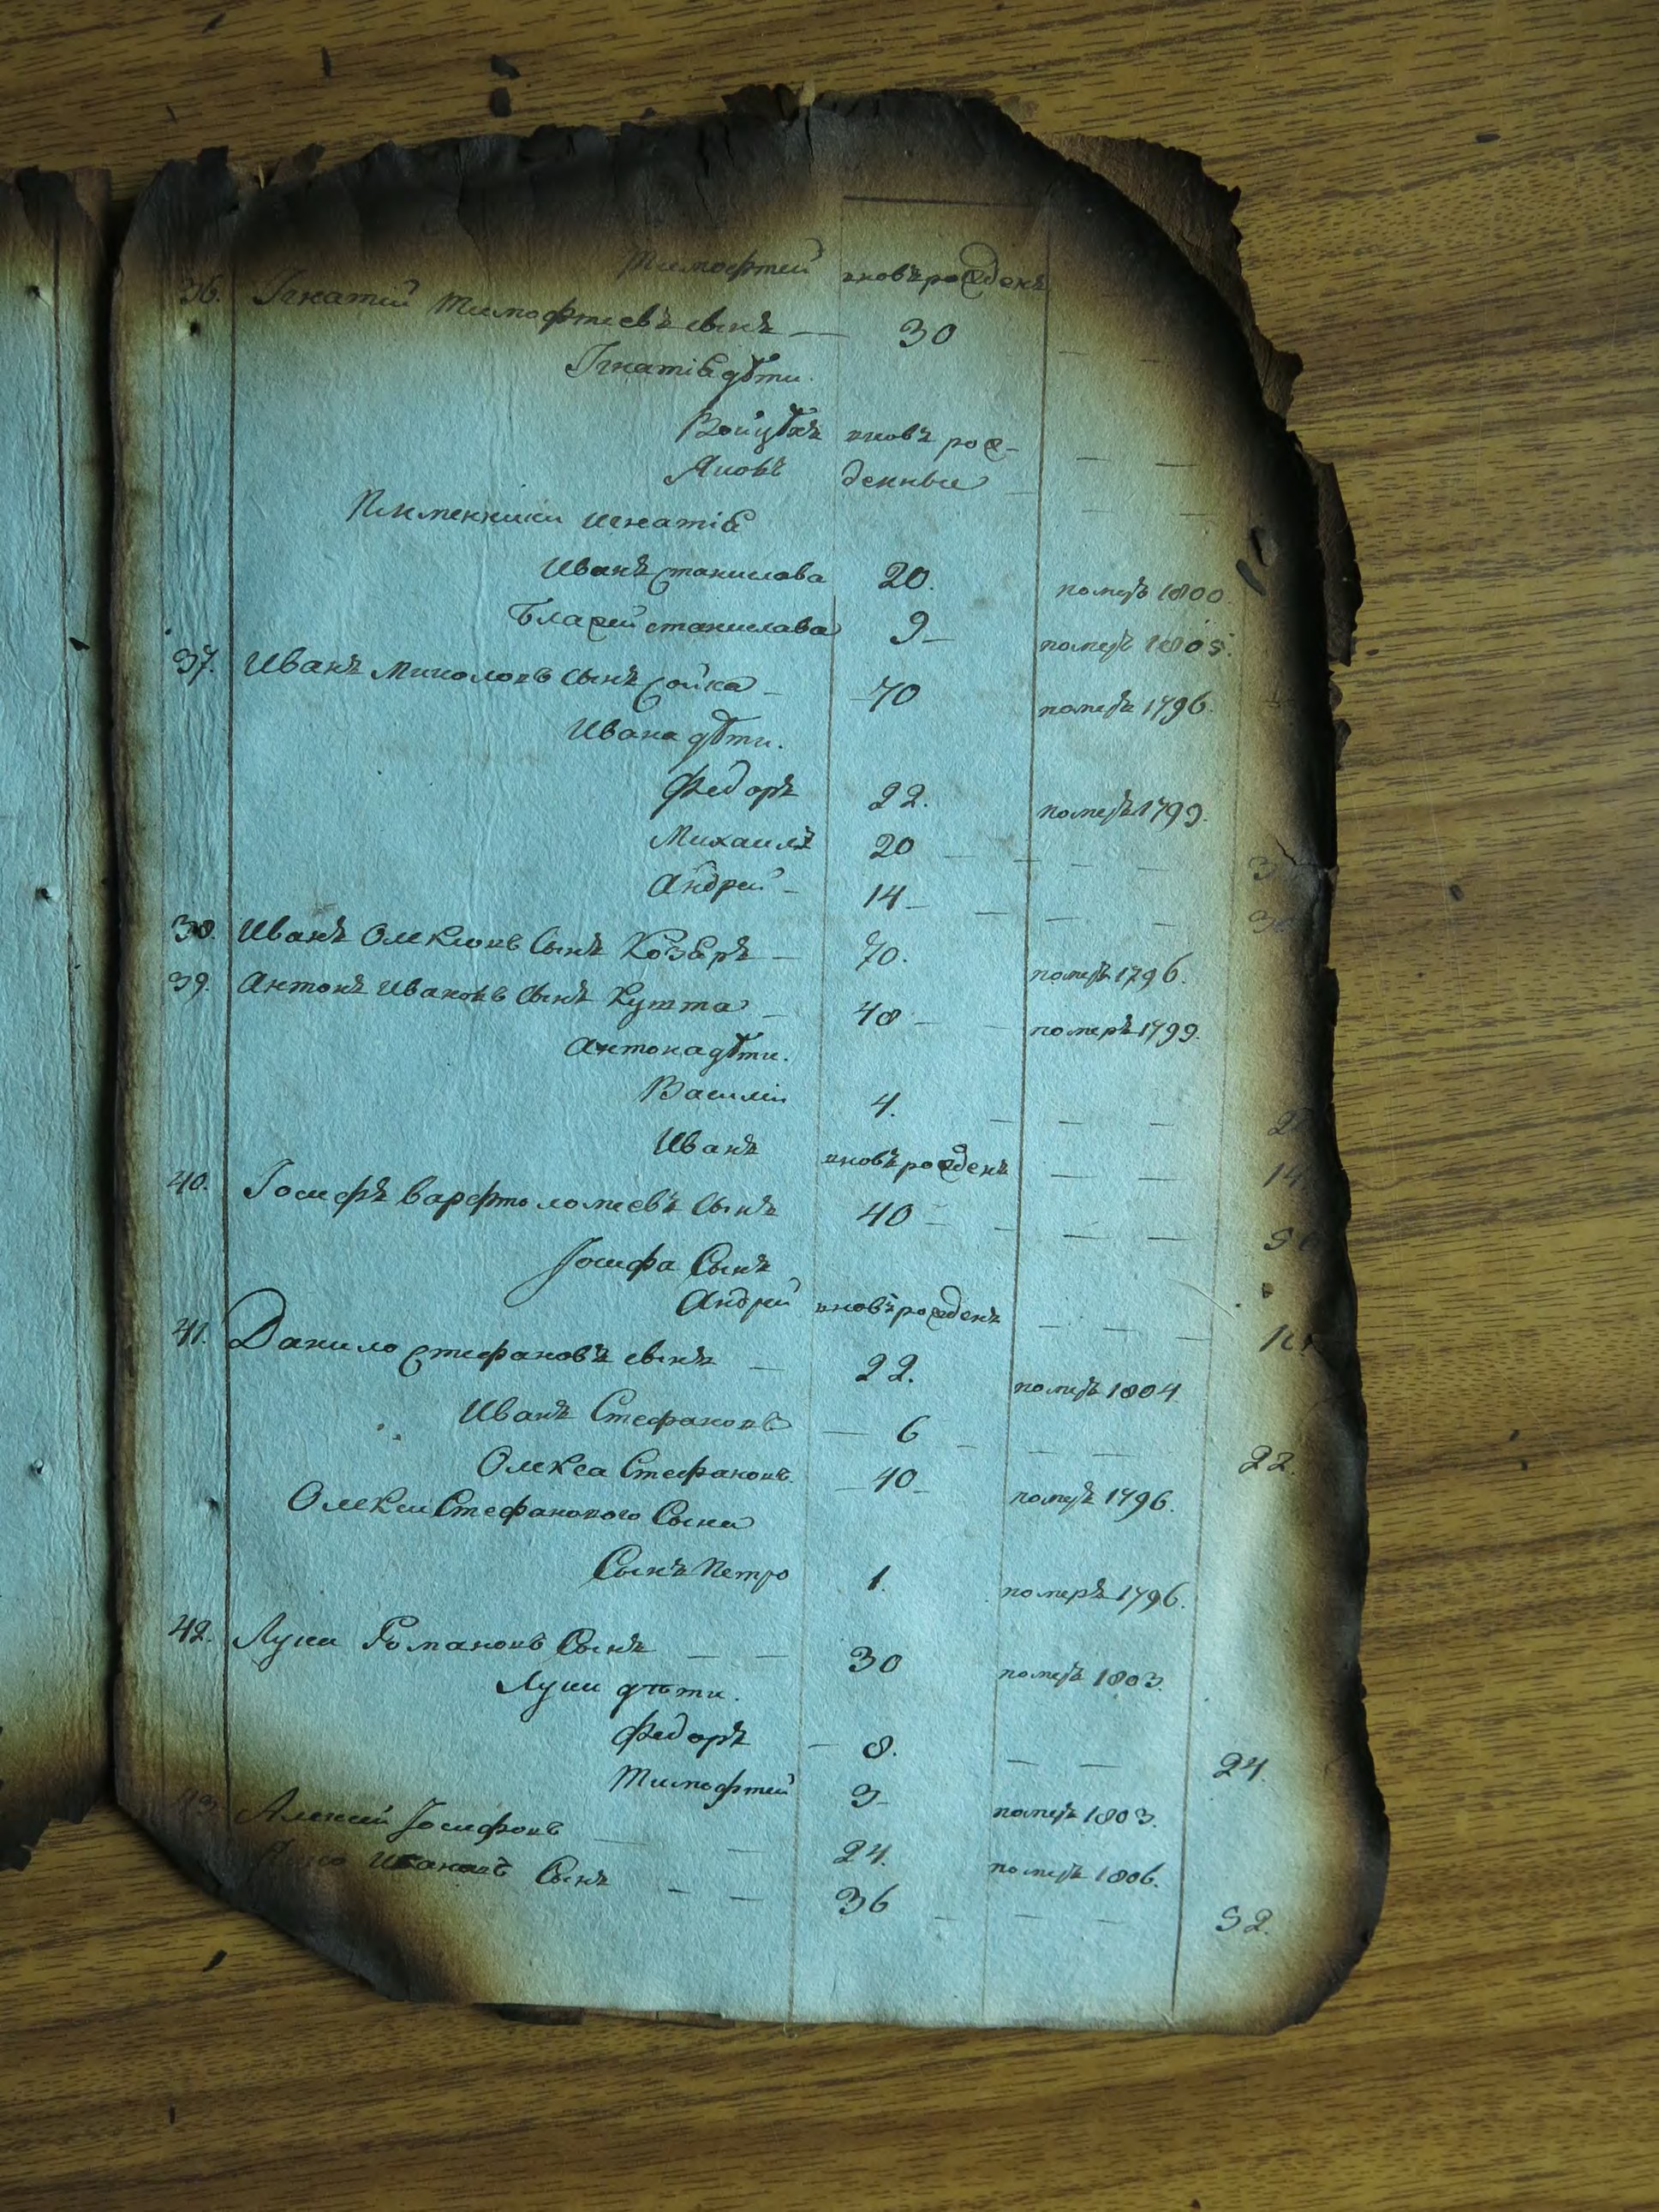 Тимофтей вновь рожденъ
36. Игнатий Тимофтеевъ сынъ — 30
Игнатія дѣти.
Войцѣхъ вновь рож-
Яковъ денныи
Племенники игнатія
Иванъ станислава 20. померъ 1800.
Блажей станислава 9 — померъ 1805.
37. Иванъ Миколовъ сынъ Сойка — 70 померъ 1796.
Ивана дѣти.
Федоръ 22. померъ 1799.
Михаилъ 20 — — — — 3
Андрей — 14 — — — — 30
38. Иванъ Олексіовъ Сынъ — 70. померъ 1796.
39. Антонъ Ивановъ Сынъ Кушта — 48 — — померъ 1799.
Антона дѣти.
Василій 4. — — — 2
Иванъ вновь рожденъ — — 14
40. Іосифъ Варфтоломеевъ Сынъ 40 — — — — 5
Іосифа Сынъ
Андрей вновь рожденъ — — —
41. Данило Стефановъ сынъ — 22. померъ 1804
Иванъ Стефановъ — 6 — — — 22.
Олекса Стефановъ — 40 — померъ 1796.
Олексы Стефанового Сына
Сынъ Петро 1. померъ 1796.
42. Луки Романовъ Сынъ — — 30 померъ 1803.
Луки дѣти.
Федоръ — 8. — — 24.
Тимофтей 3 — померъ 1803.
43. Алексей Іосифовъ — — 24. померъ 1806.
Ивановъ Сынъ — — 36 — — — 52.